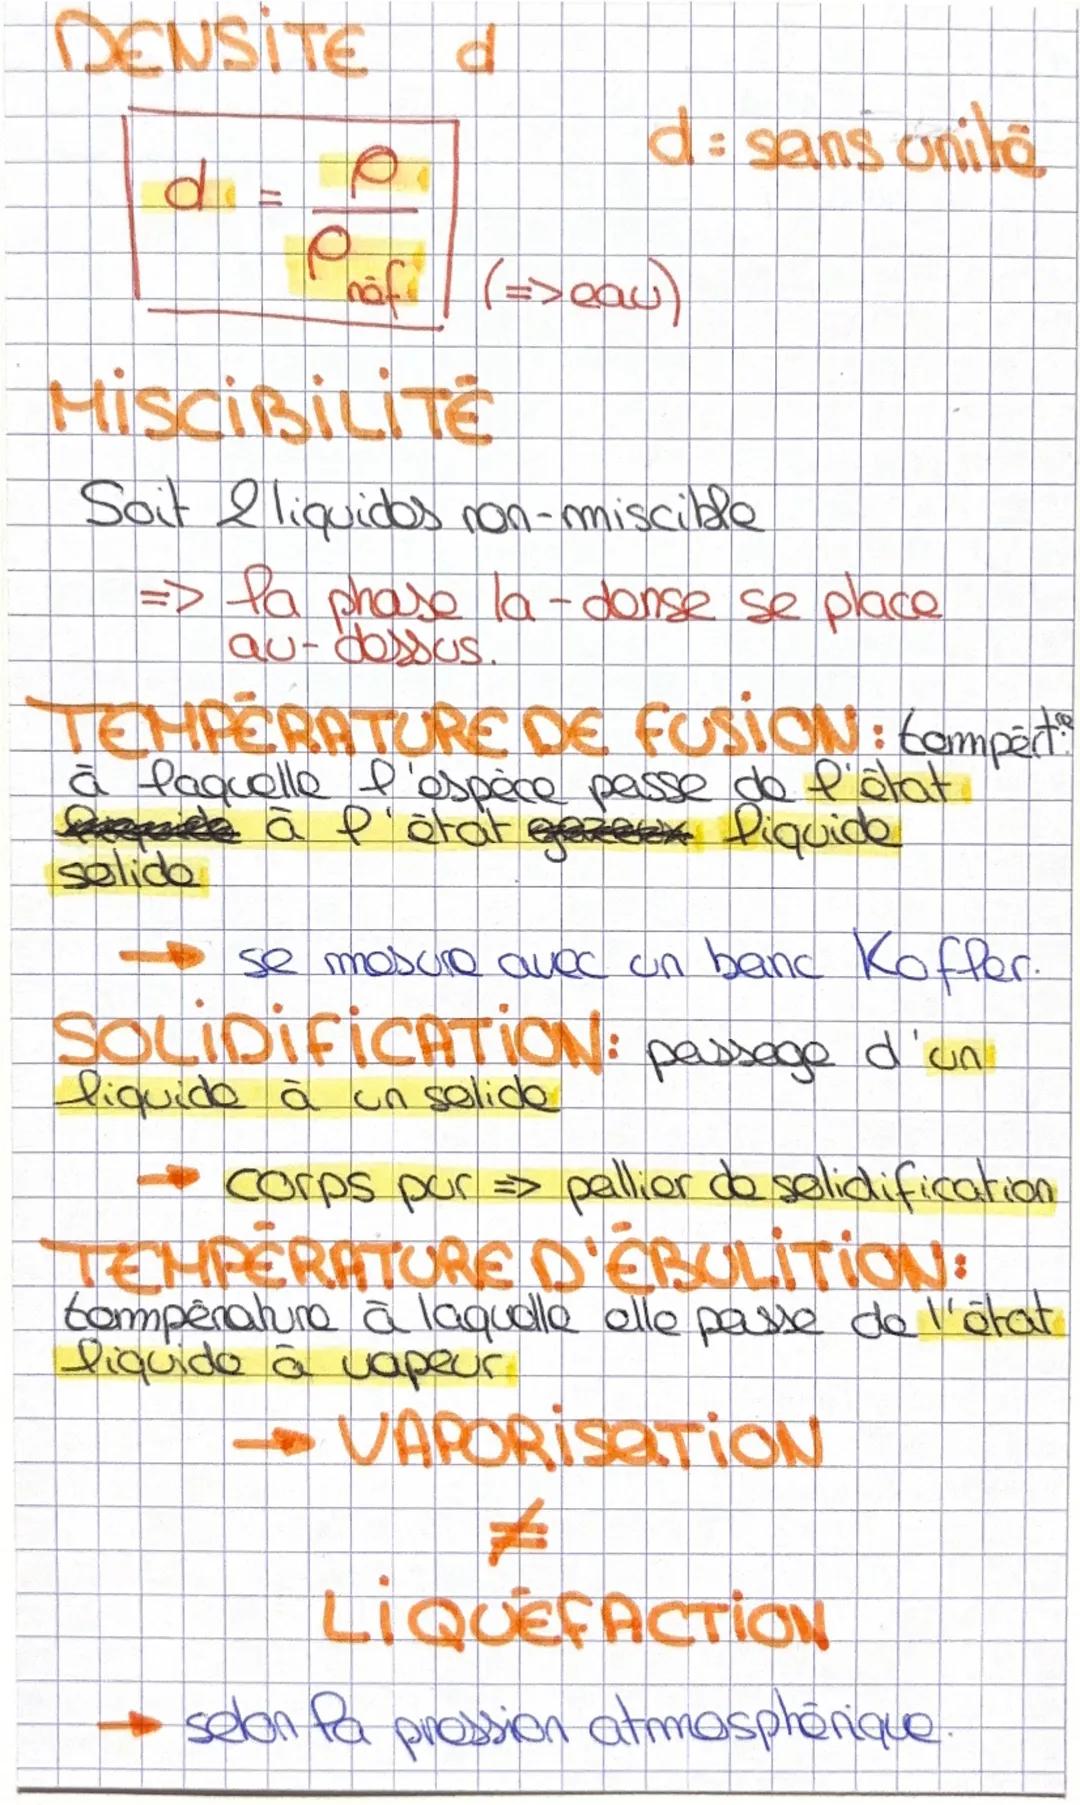 DENSITÉ d
d = ρ / ρ réf (=> eau)
d = sans unité
MISCIBILITÉ
Soit 2 liquides non-miscible
=> la phase la - dense se place
au-dessus.
TEMPÉRATURE DE FUSION : tempért°re
à laquelle l'espèce passe de l'état
liquide à l'état gazeux liquide
solide
→ se mesure avec un banc Koffler.
SOLIDIFICATION : passage d'un
liquide à un solide
→ corps pur => pallier de solidification
TEMPÉRATURE D'ÉBULITION :
température à laquelle elle passe de l'état
liquide à vapeur
→ VAPORISATION
≠
LIQUÉFACTION
→ selon la pression atmosphérique.